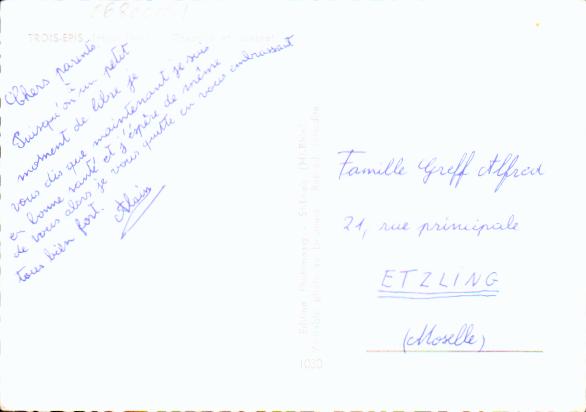 TROIS-EPIS
Chers parents
Puisqu'on a un petit
moment de libre je
vous dis que maintenant je suis
en bonne santé et j'éspère de même
de vous alors je vous quitte en vous embrassant
tous bien fort.
Alain
Famille Greff Alfred
21, rue principale
ETZLING
(Moselle)
1030